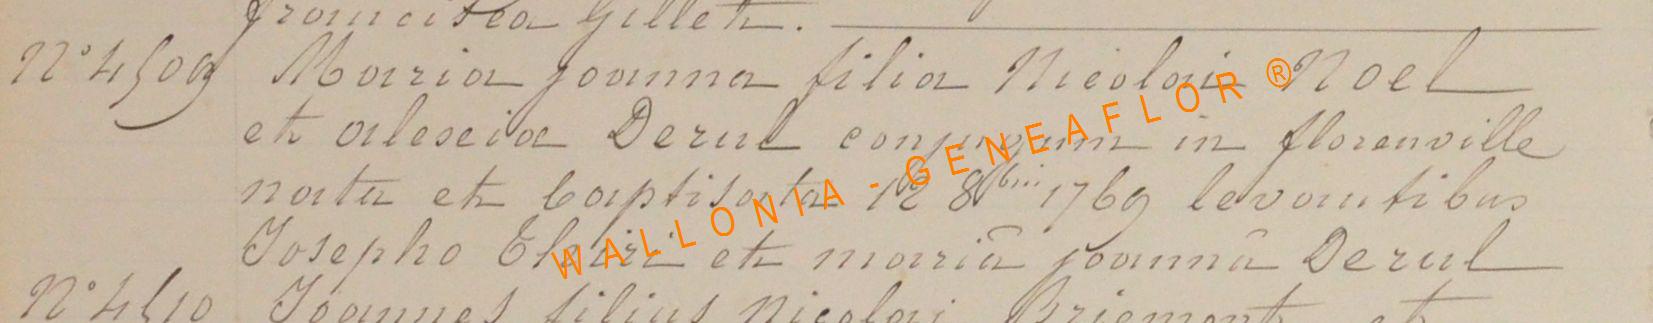 francisca Gillet.
N° 4509 Maria joanna filia Nicolai Noel
et alexia Derul conjugum in florenville
nata et baptisata 12 8bris 1769 levantibus
Josepho et maria joanna Derul
N° 4510 Joannes filius Nicolai Briemont et
WALLONIA - GENEAFLOR ®